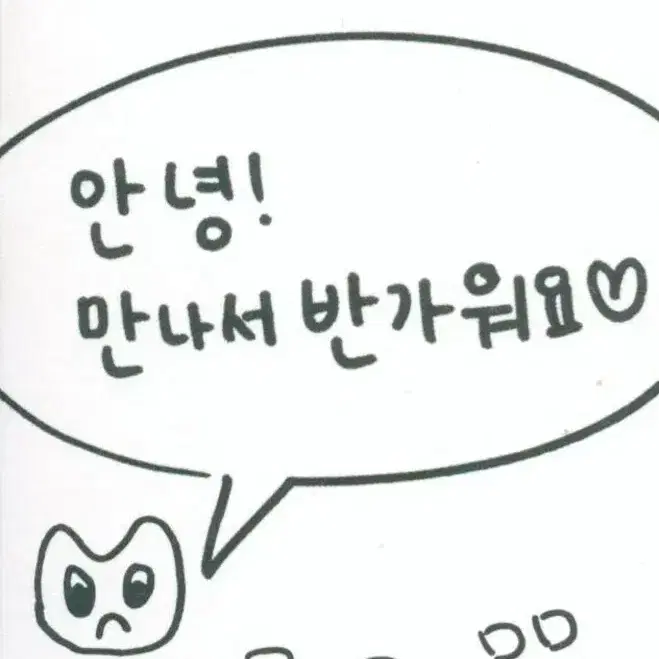 안녕!
만나서 반가워요♡